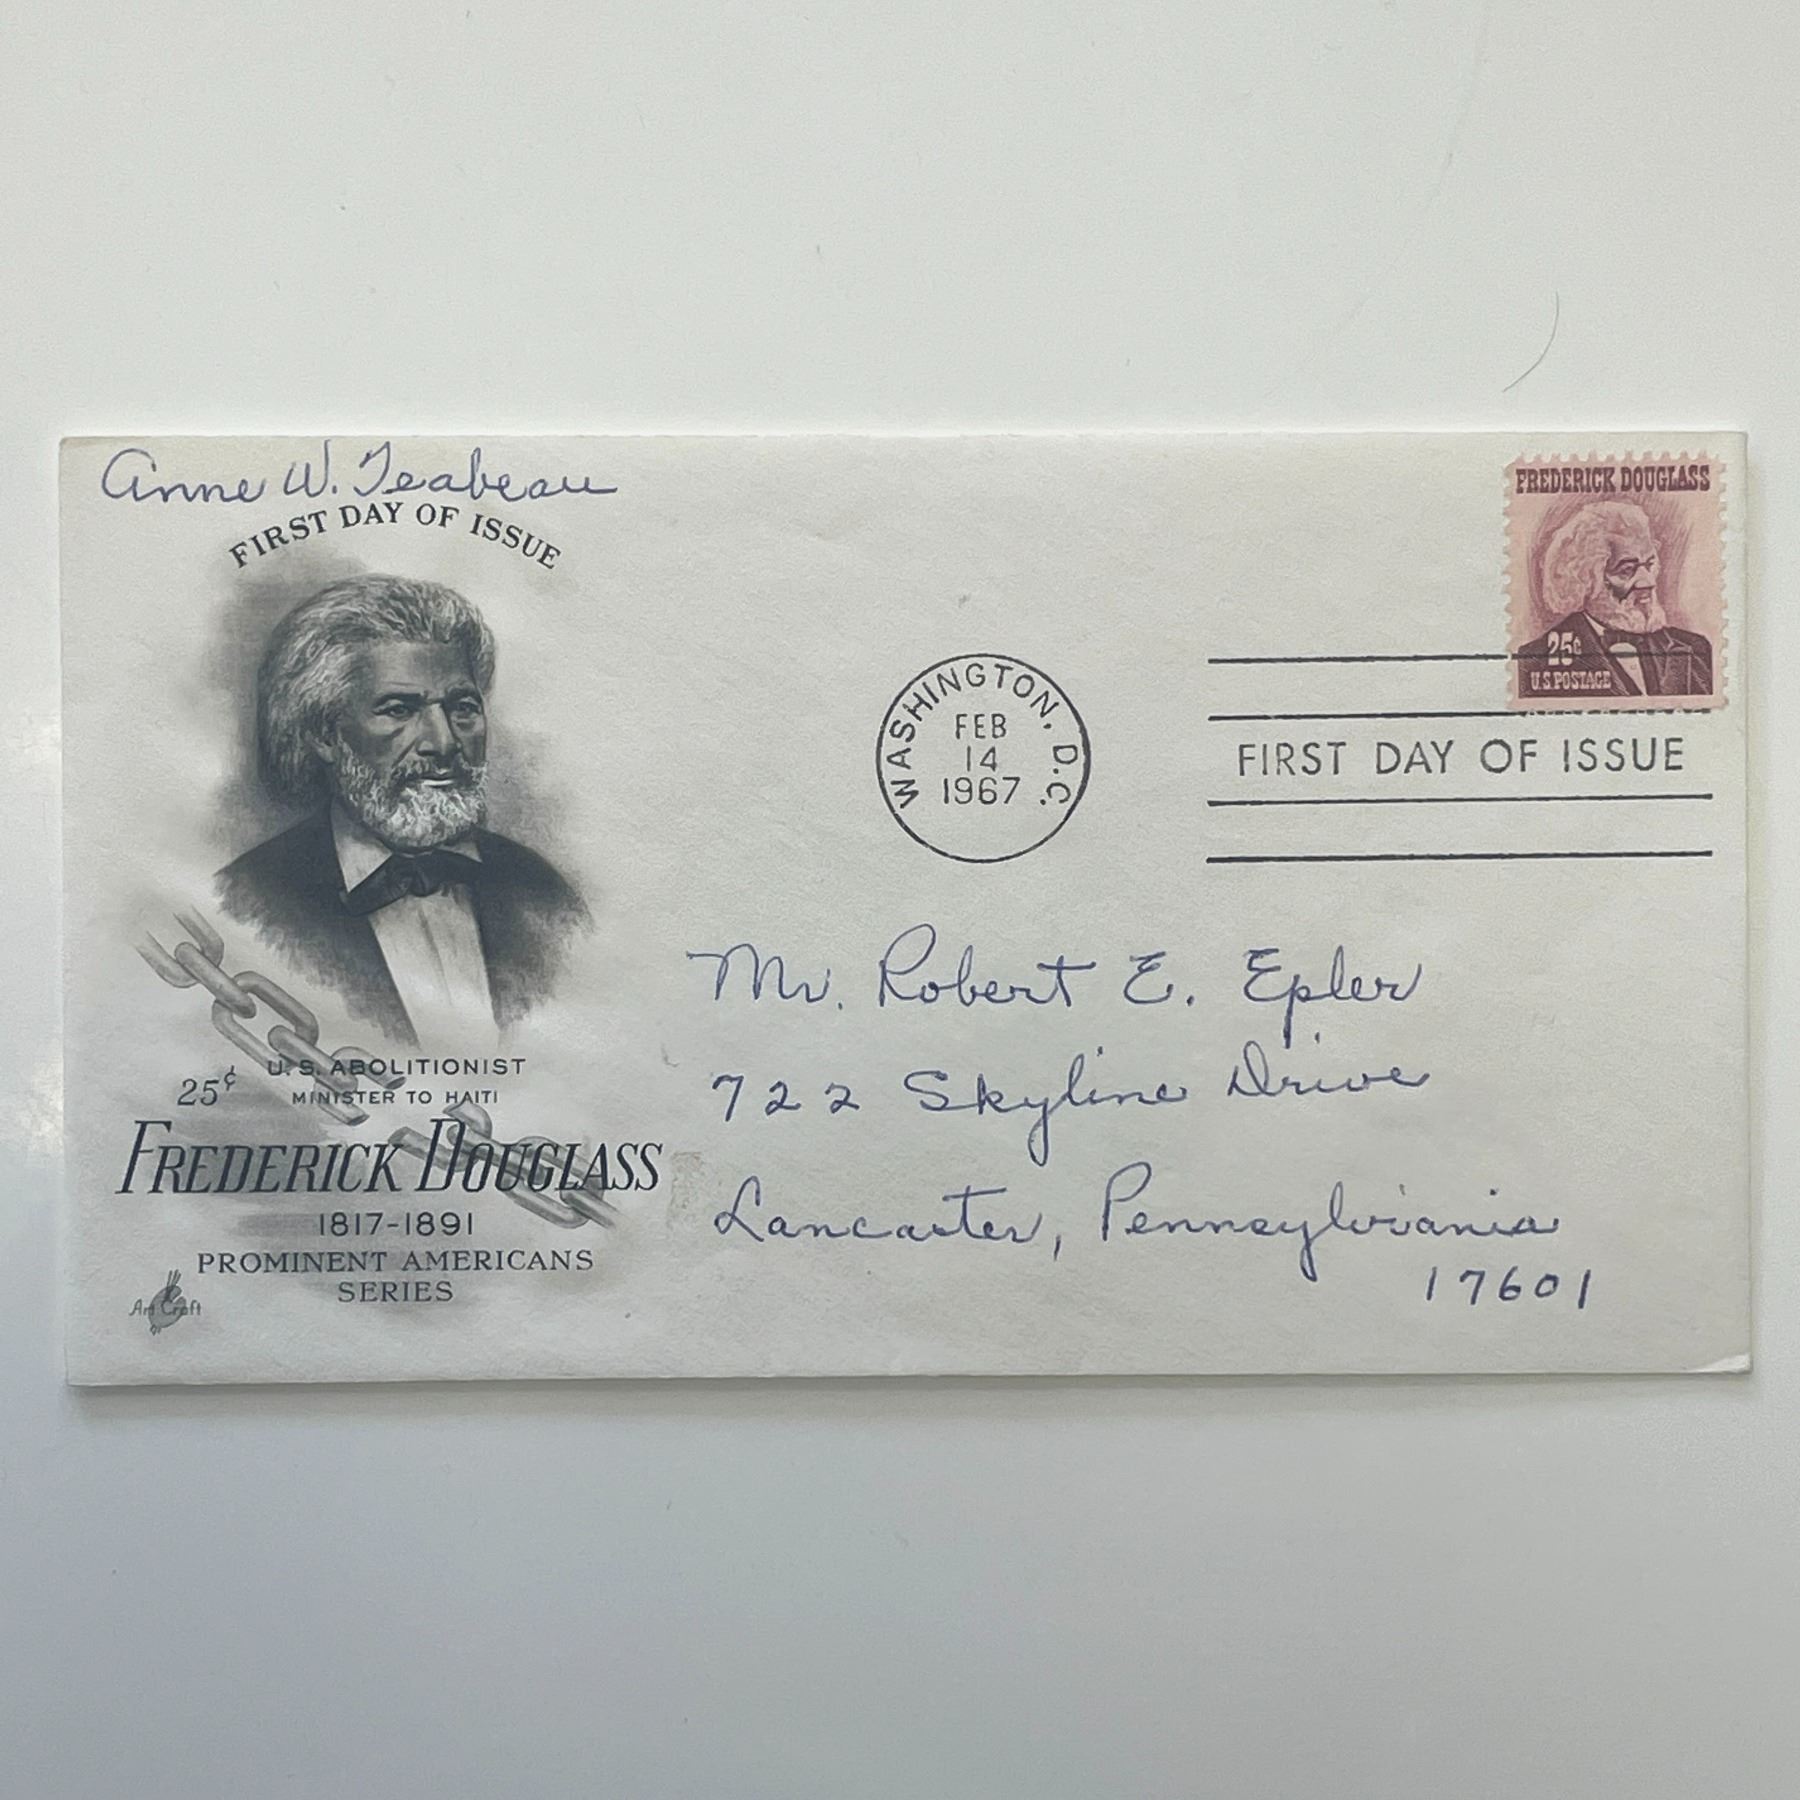 Anne W. Teabeau
FIRST DAY OF ISSUE
25¢
U.S. ABOLITIONIST
MINISTER TO HAITI
FREDERICK DOUGLASS
1817-1891
PROMINENT AMERICANS
SERIES
Art Craft
WASHINGTON, D.C.
FEB
14
1967
FREDERICK DOUGLASS
25¢
U.S. POSTAGE
FIRST DAY OF ISSUE
Mr. Robert E. Epler
722 Skyline Drive
Lancaster, Pennsylvania
17601